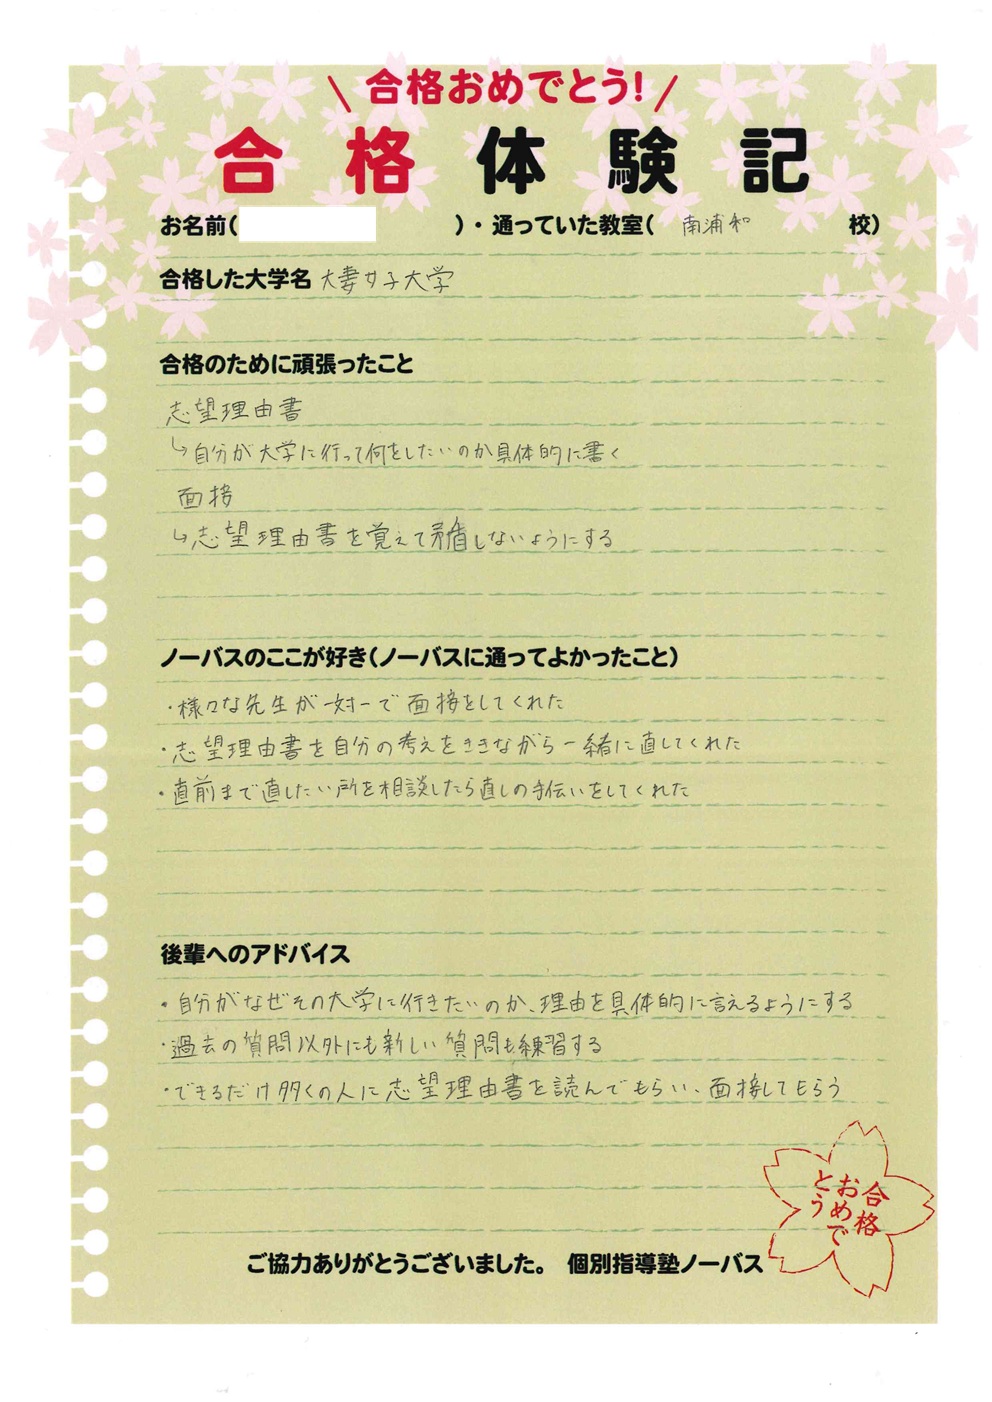 合格おめでとう!
合格体験記
お名前( )・通っていた教室( 南浦和 校)
合格した大学名 大妻女子大学
合格のために頑張ったこと
志望理由書
↳自分が大学に行って何をしたいのか具体的に書く
面接
↳志望理由書を覚えて矛盾しないようにする
ノーバスのここが好き(ノーバスに通ってよかったこと)
・様々な先生が一対一で面接をしてくれた
・志望理由書を自分の考えをききながら一緒に直してくれた
・直前まで直したい所を相談したら直しの手伝いをしてくれた
後輩へのアドバイス
・自分がなぜその大学に行きたいのか、理由を具体的に言えるようにする
・過去の質問以外にも新しい質問も練習する
・できるだけ多くの人に志望理由書を読んでもらい、面接してもらう
合格
おめで
とう
ご協力ありがとうございました。 個別指導塾ノーバス